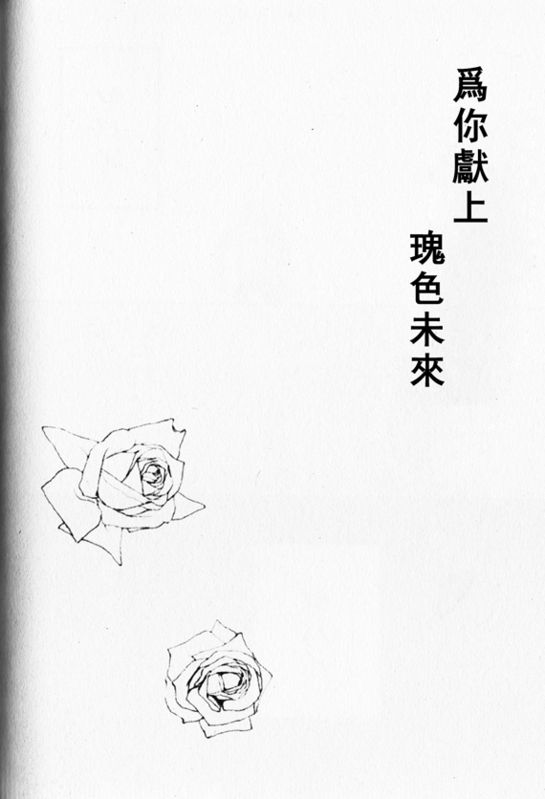 爲你獻上
瑰色未來